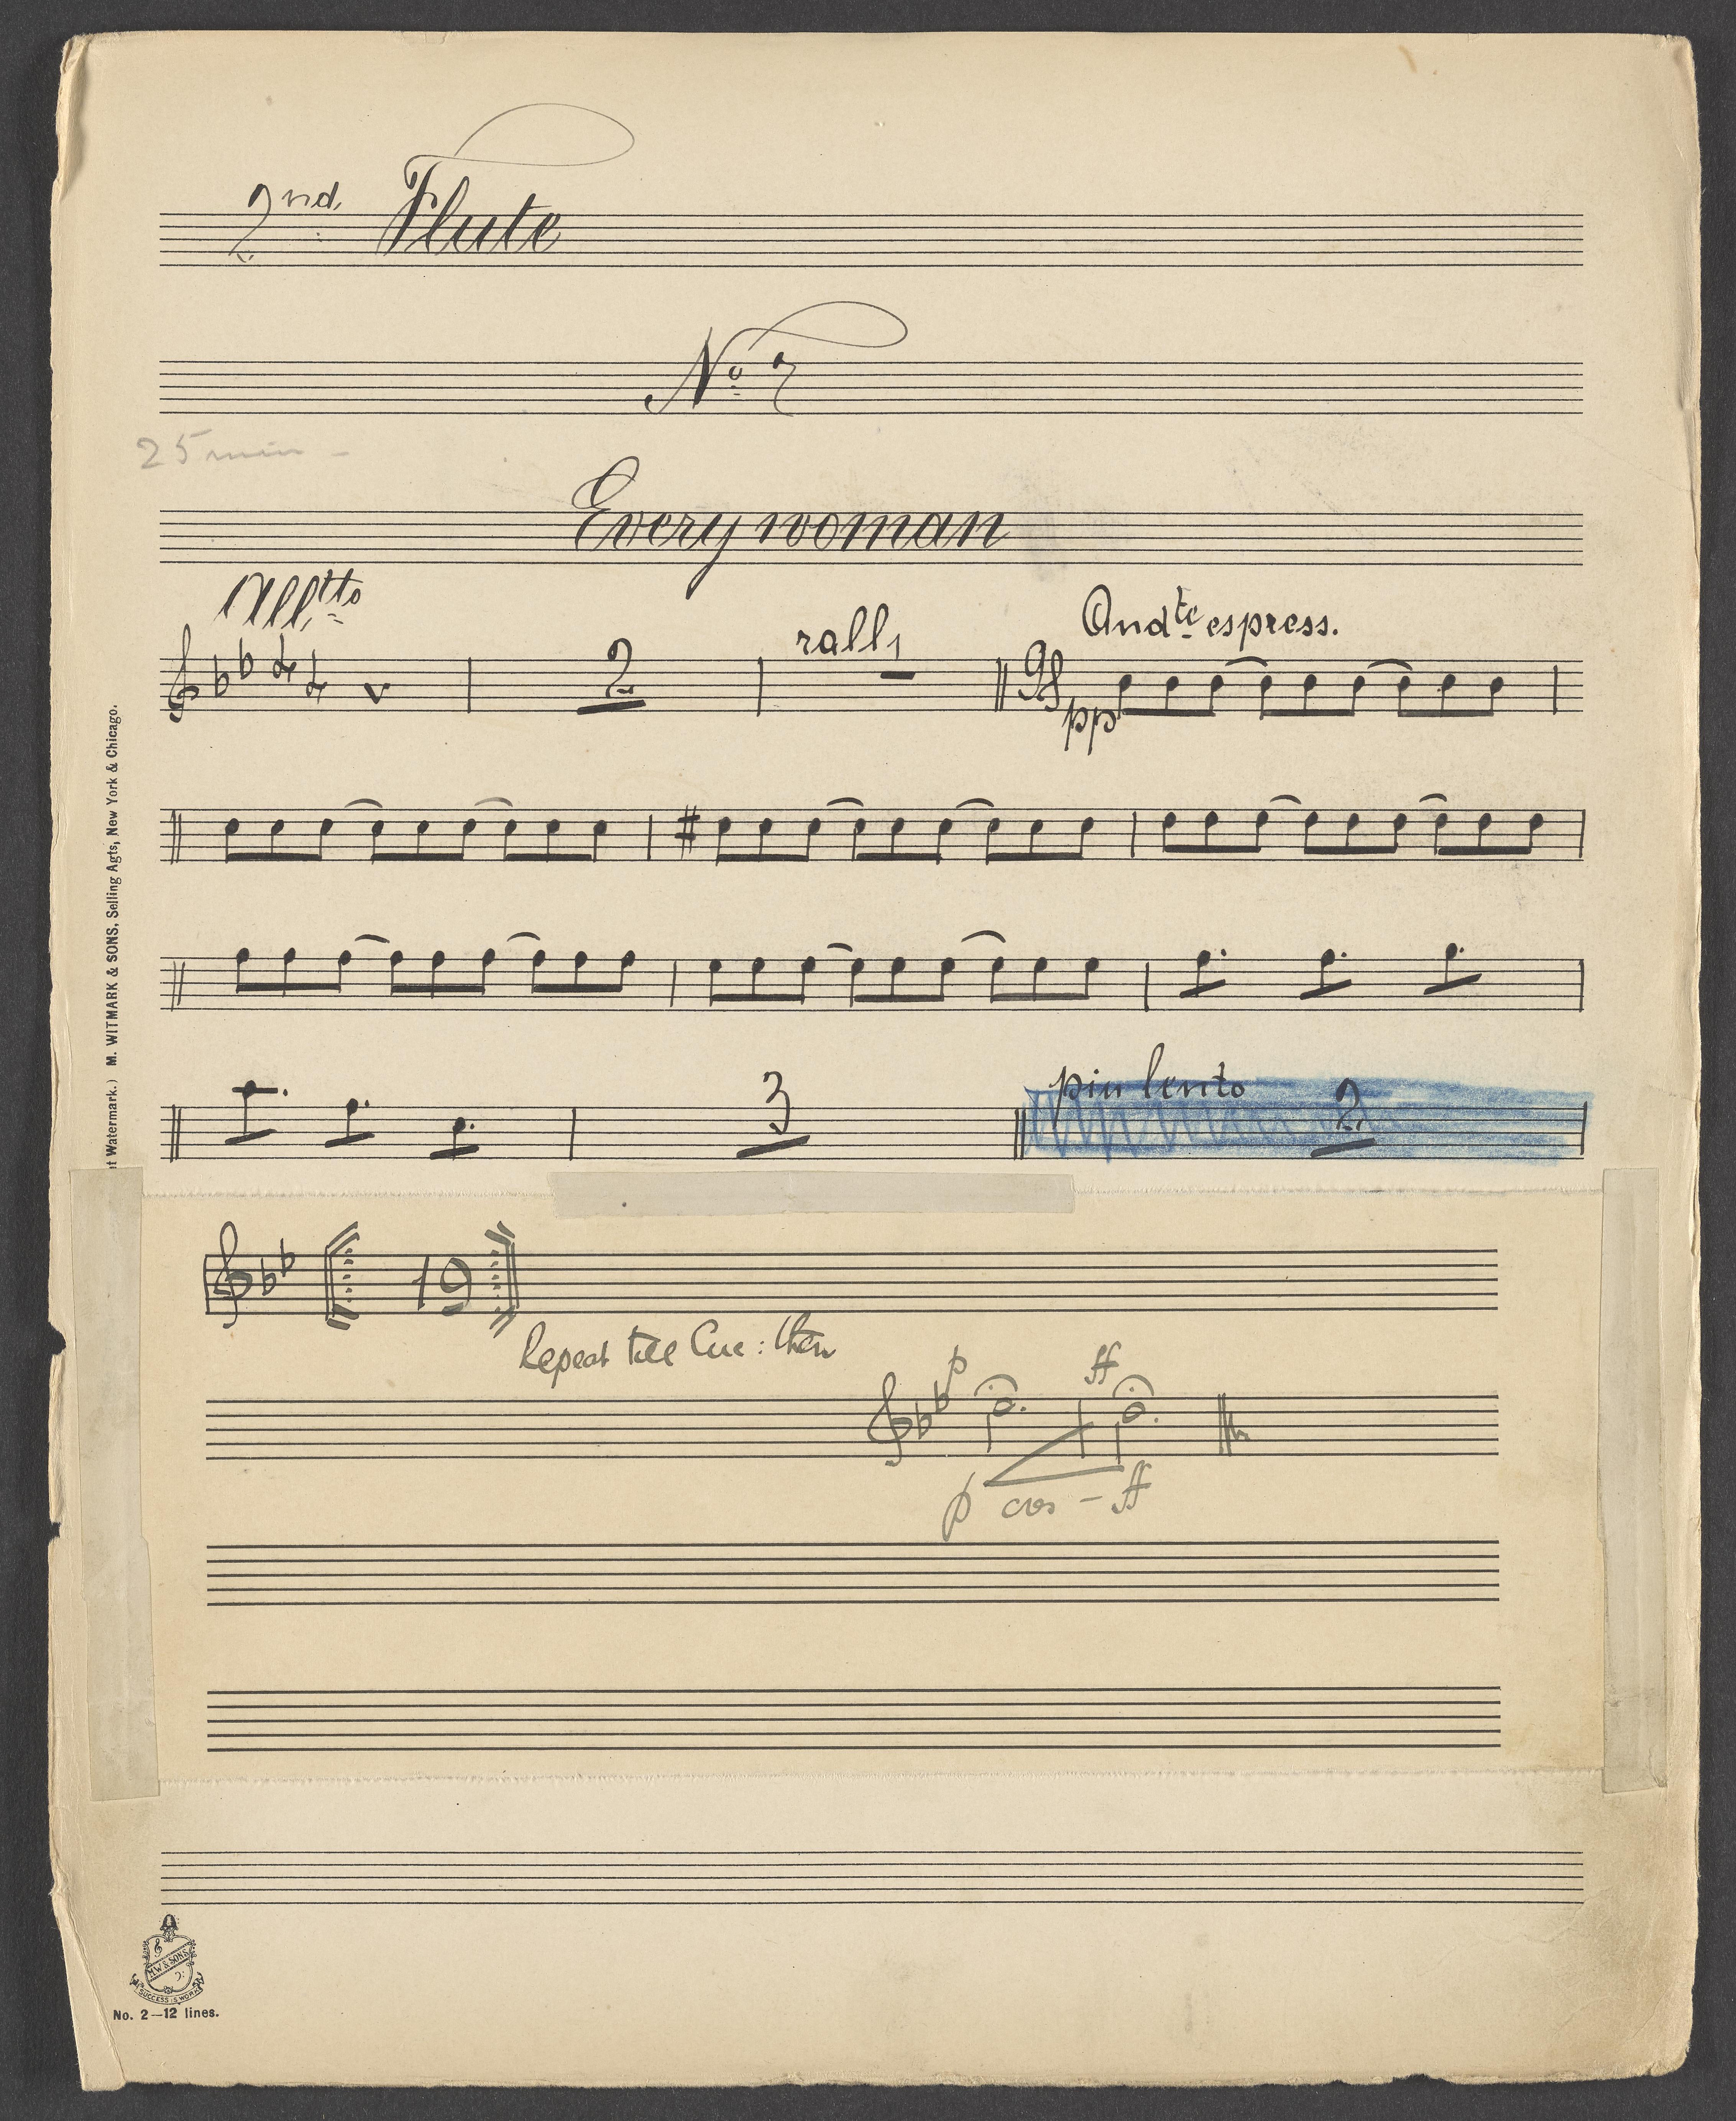 2nd. Flute
No 7
25 min -
Everywoman
Alltto
2
rall,
Andte espress.
98
pp
3
piu lento
2
19
Repeat till Cue: then
p
ff
p cres - ff
t Watermark.) M. WITMARK & SONS, Selling Agts, New York & Chicago.
M W & SONS
SUCCESS IS WORK
No. 2—12 lines.